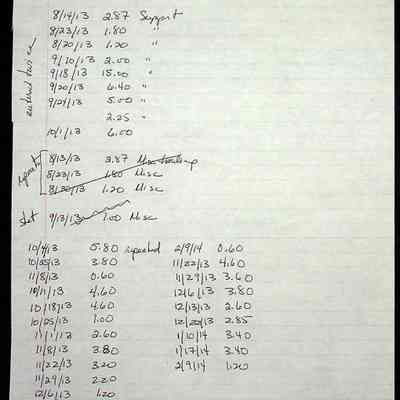 entered twice
8/14/13 2.87 Support
8/23/13 1.80 "
8/20/13 1.20 "
9/10/13 2.00 "
9/18/13 15.00 "
9/20/13 6.40 "
9/24/13 5.00 "
2.25 "
10/1/13 6.00
repeats
8/13/13 2.87 Misc
8/23/13 1.80 Misc
8/20/13 1.20 Misc
stet 9/13/13 1.00 Misc
10/4/13 5.80 repeated 2/9/14 0.60
10/25/13 3.80 11/22/13 4.60
11/8/13 0.60 11/29/13 3.60
10/11/13 4.60 12/6/13 3.80
10/18/13 4.60 12/13/13 2.60
10/25/13 1.00 12/20/13 2.85
11/1/13 2.60 1/10/14 3.40
11/8/13 3.80 1/17/14 3.40
11/22/13 3.20 2/9/14 1.20
11/29/13 2.20
12/6/13 1.20